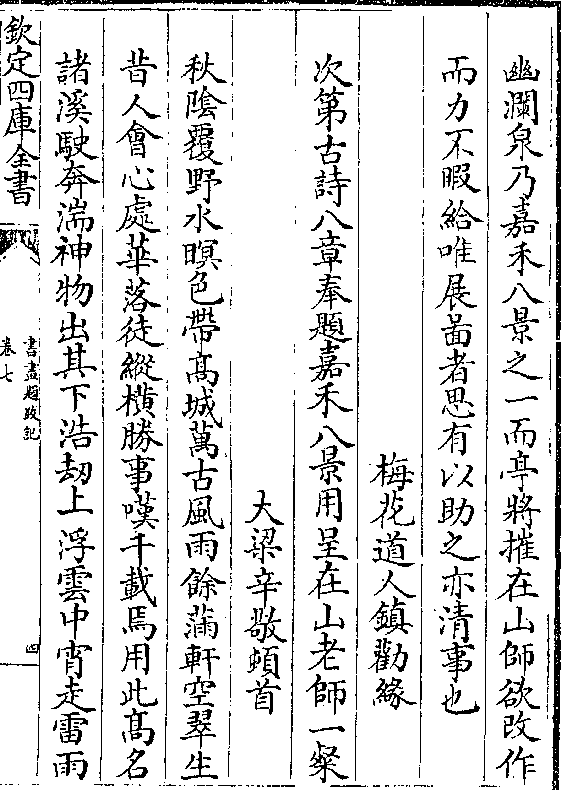 幽瀾泉乃嘉禾八景之一而亭將摧在山師欲改作
而力不暇給唯展啚者思有以助之亦清事也
梅花道人鎮勸緣
次第古詩八章奉題嘉禾八景用呈在山老師一粲
大梁辛敬頓首
秋隂覆野水暝色帶髙城萬古風雨餘滿軒空翠生
昔人會心處華落徒縱橫勝事嘆千載焉用此髙名
諸溪駛奔湍神物出其下浩劫上浮雲中宵走雷雨
欽定四庫全書
書畫題跋記
卷七
四